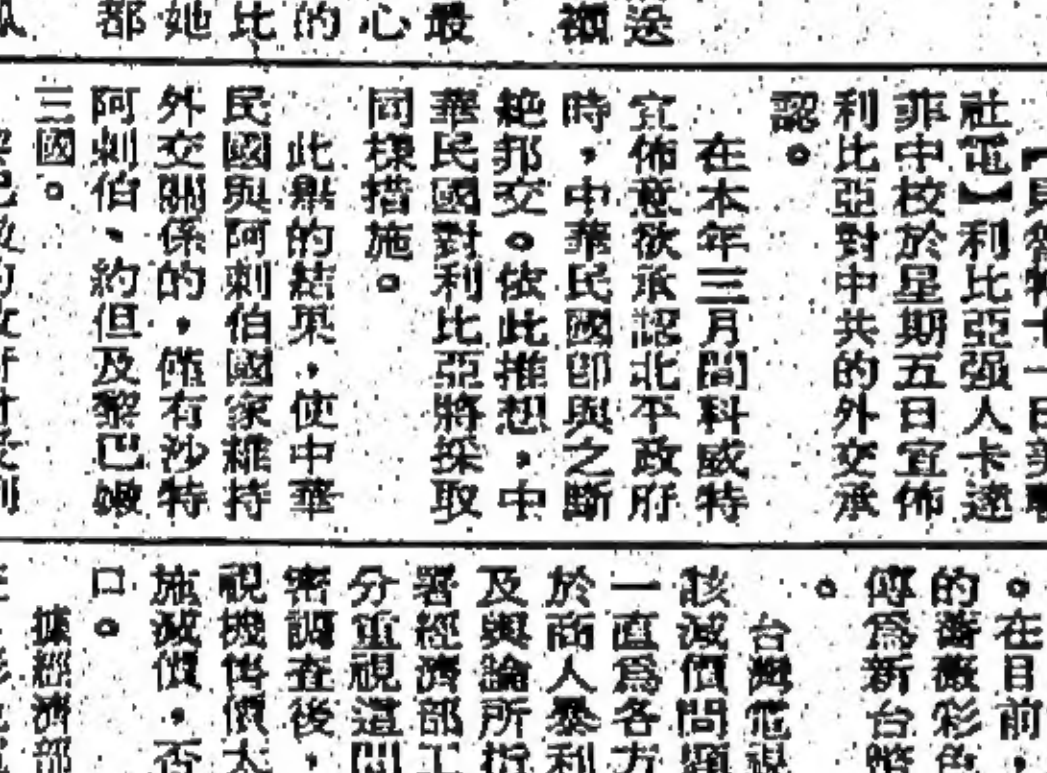 送
禮
最
心
的
比
她
都
社電】利比亞强人卡達
菲中校於星期五日宣佈
利比亞對中共的外交承
認。
在本年三月間科威特
宣佈意欲承認北平政府
時，中華民國即與之斷
絶邦交。依此推想，中
華民國對利比亞將採取
同樣措施。
此點的結果，使中華
民國與阿剌伯國家維持
外交關係的，僅有沙特
阿剌伯、約但及黎巴嫩
三國。
。在目前，
的薔薇彩色
傳爲新台幣
。
台灣電視
該減價問題
一直爲各方
於商人暴利
及輿論所指
署經濟部工
分重視這問
密調查後，
視機售價太
施減價，否
口。
據經濟部